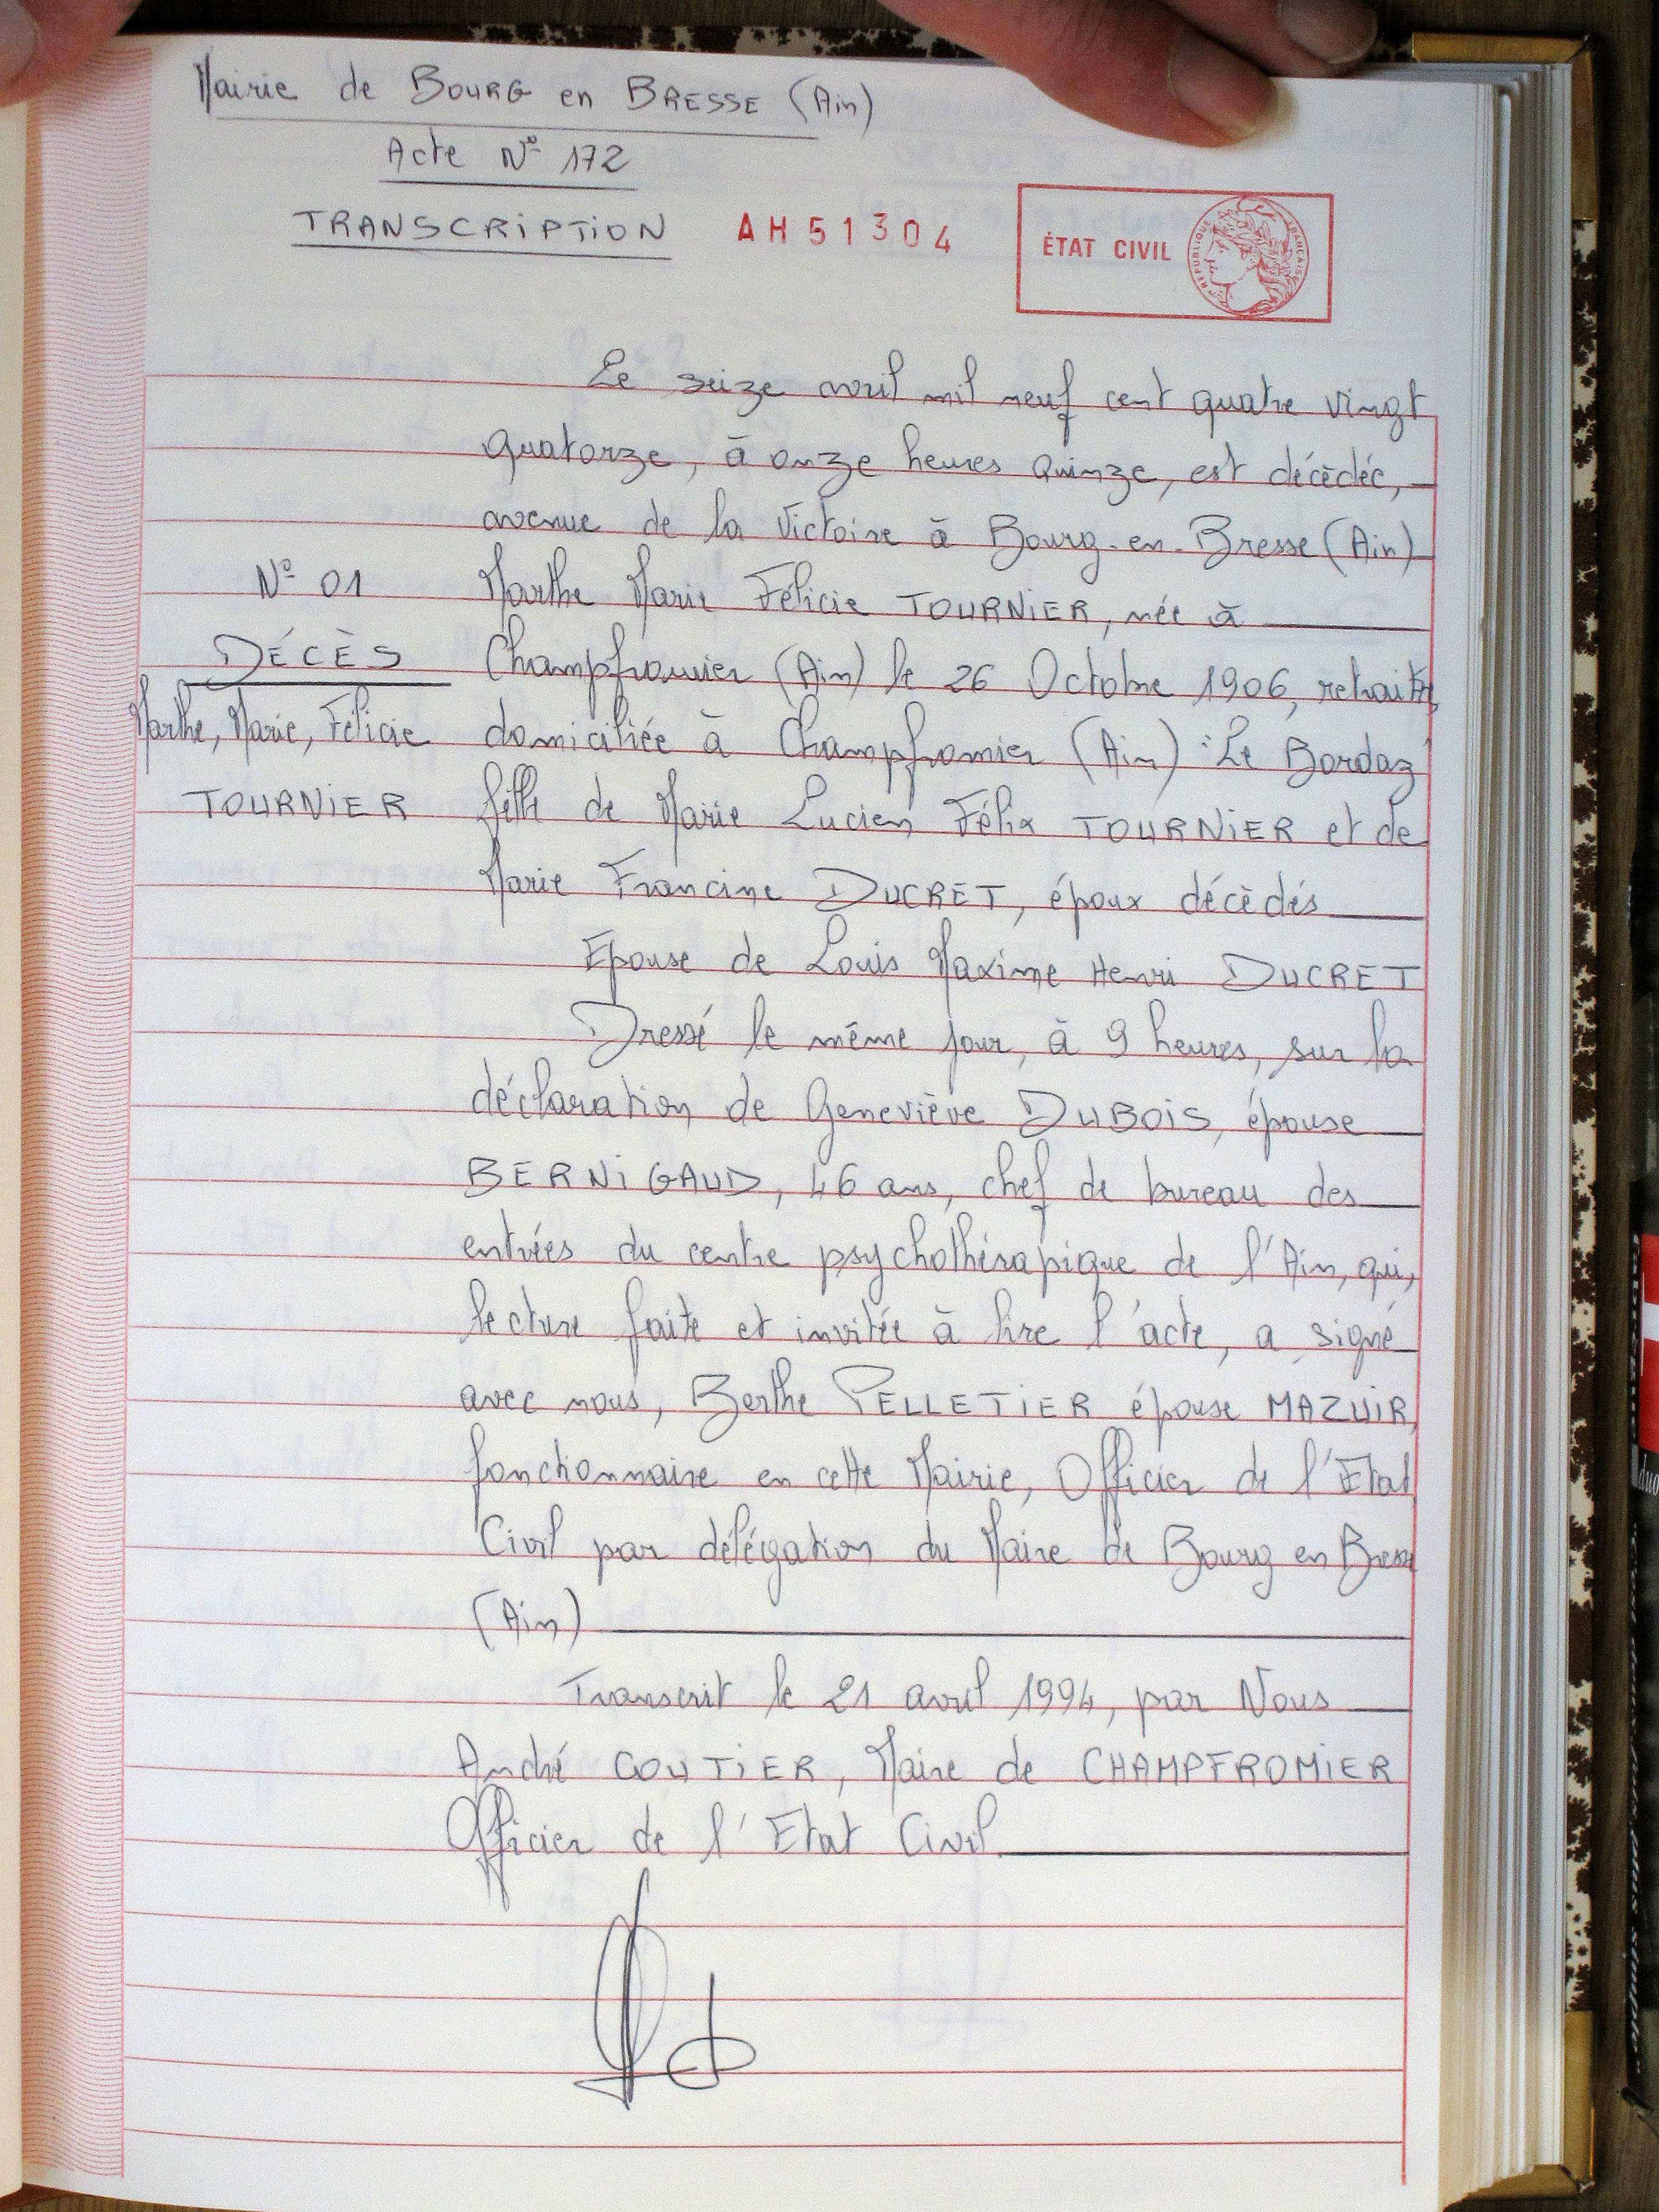 Mairie de BOURG en BRESSE (Ain)
Acte N° 172
TRANSCRIPTION AH51304
ÉTAT CIVIL
RÉPUBLIQUE FRANÇAISE
Le seize avril mil neuf cent quatre vingt
quatorze, à onze heures quinze, est décédée,
avenue de la Victoire à Bourg-en-Bresse (Ain)
N° 01
Marthe Marie Félicie TOURNIER, née à
DÉCÈS
Champfromier (Ain) le 26 Octobre 1906, retraitée,
Marthe, Marie, Félicie
domiciliée à Champfromier (Ain) "Le Bordaz"
TOURNIER
fille de Marie Lucien Félix TOURNIER et de
Marie Francine DUCRET, époux décédés
Epouse de Louis Maxime Henri DUCRET
Dressé le même jour, à 9 heures, sur la
déclaration de Geneviève DUBOIS, épouse
BERNIGAUD, 46 ans, chef de bureau des
entrées du centre psychothérapique de l'Ain, qui,
lecture faite et invitée à lire l'acte, a signé
avec nous, Berthe PELLETIER épouse MAZUIR,
fonctionnaire en cette Mairie, Officier de l'Etat
Civil par délégation du Maire de Bourg en Bresse
(Ain)
Transcrit le 21 avril 1994, par Nous
André COUTIER, Maire de CHAMPFROMIER
Officier de l'Etat Civil.